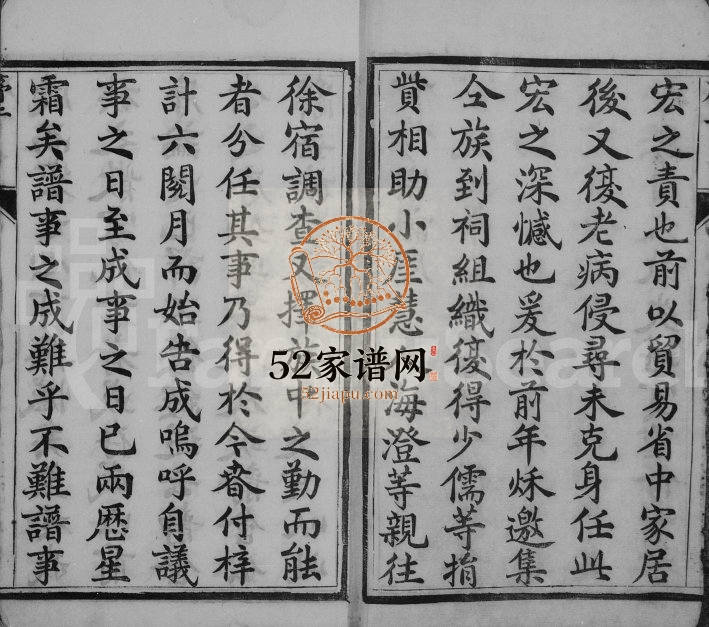 宏之責也前以貿易省中家居
後又復老病侵尋未克身任此
宏之深憾也爰於前年秌邀集
仝族到祠組織復得少儒等捐
貲相助小崖慧海澄等親往
徐宿調查又擇族中之勤而能
者分任其事乃得於今春付梓
計六閱月而始告成嗚呼自議
事之日至成事之日已兩歷星
霜矣譜事之成難乎不難譜事
52家谱网
52jiapu.com